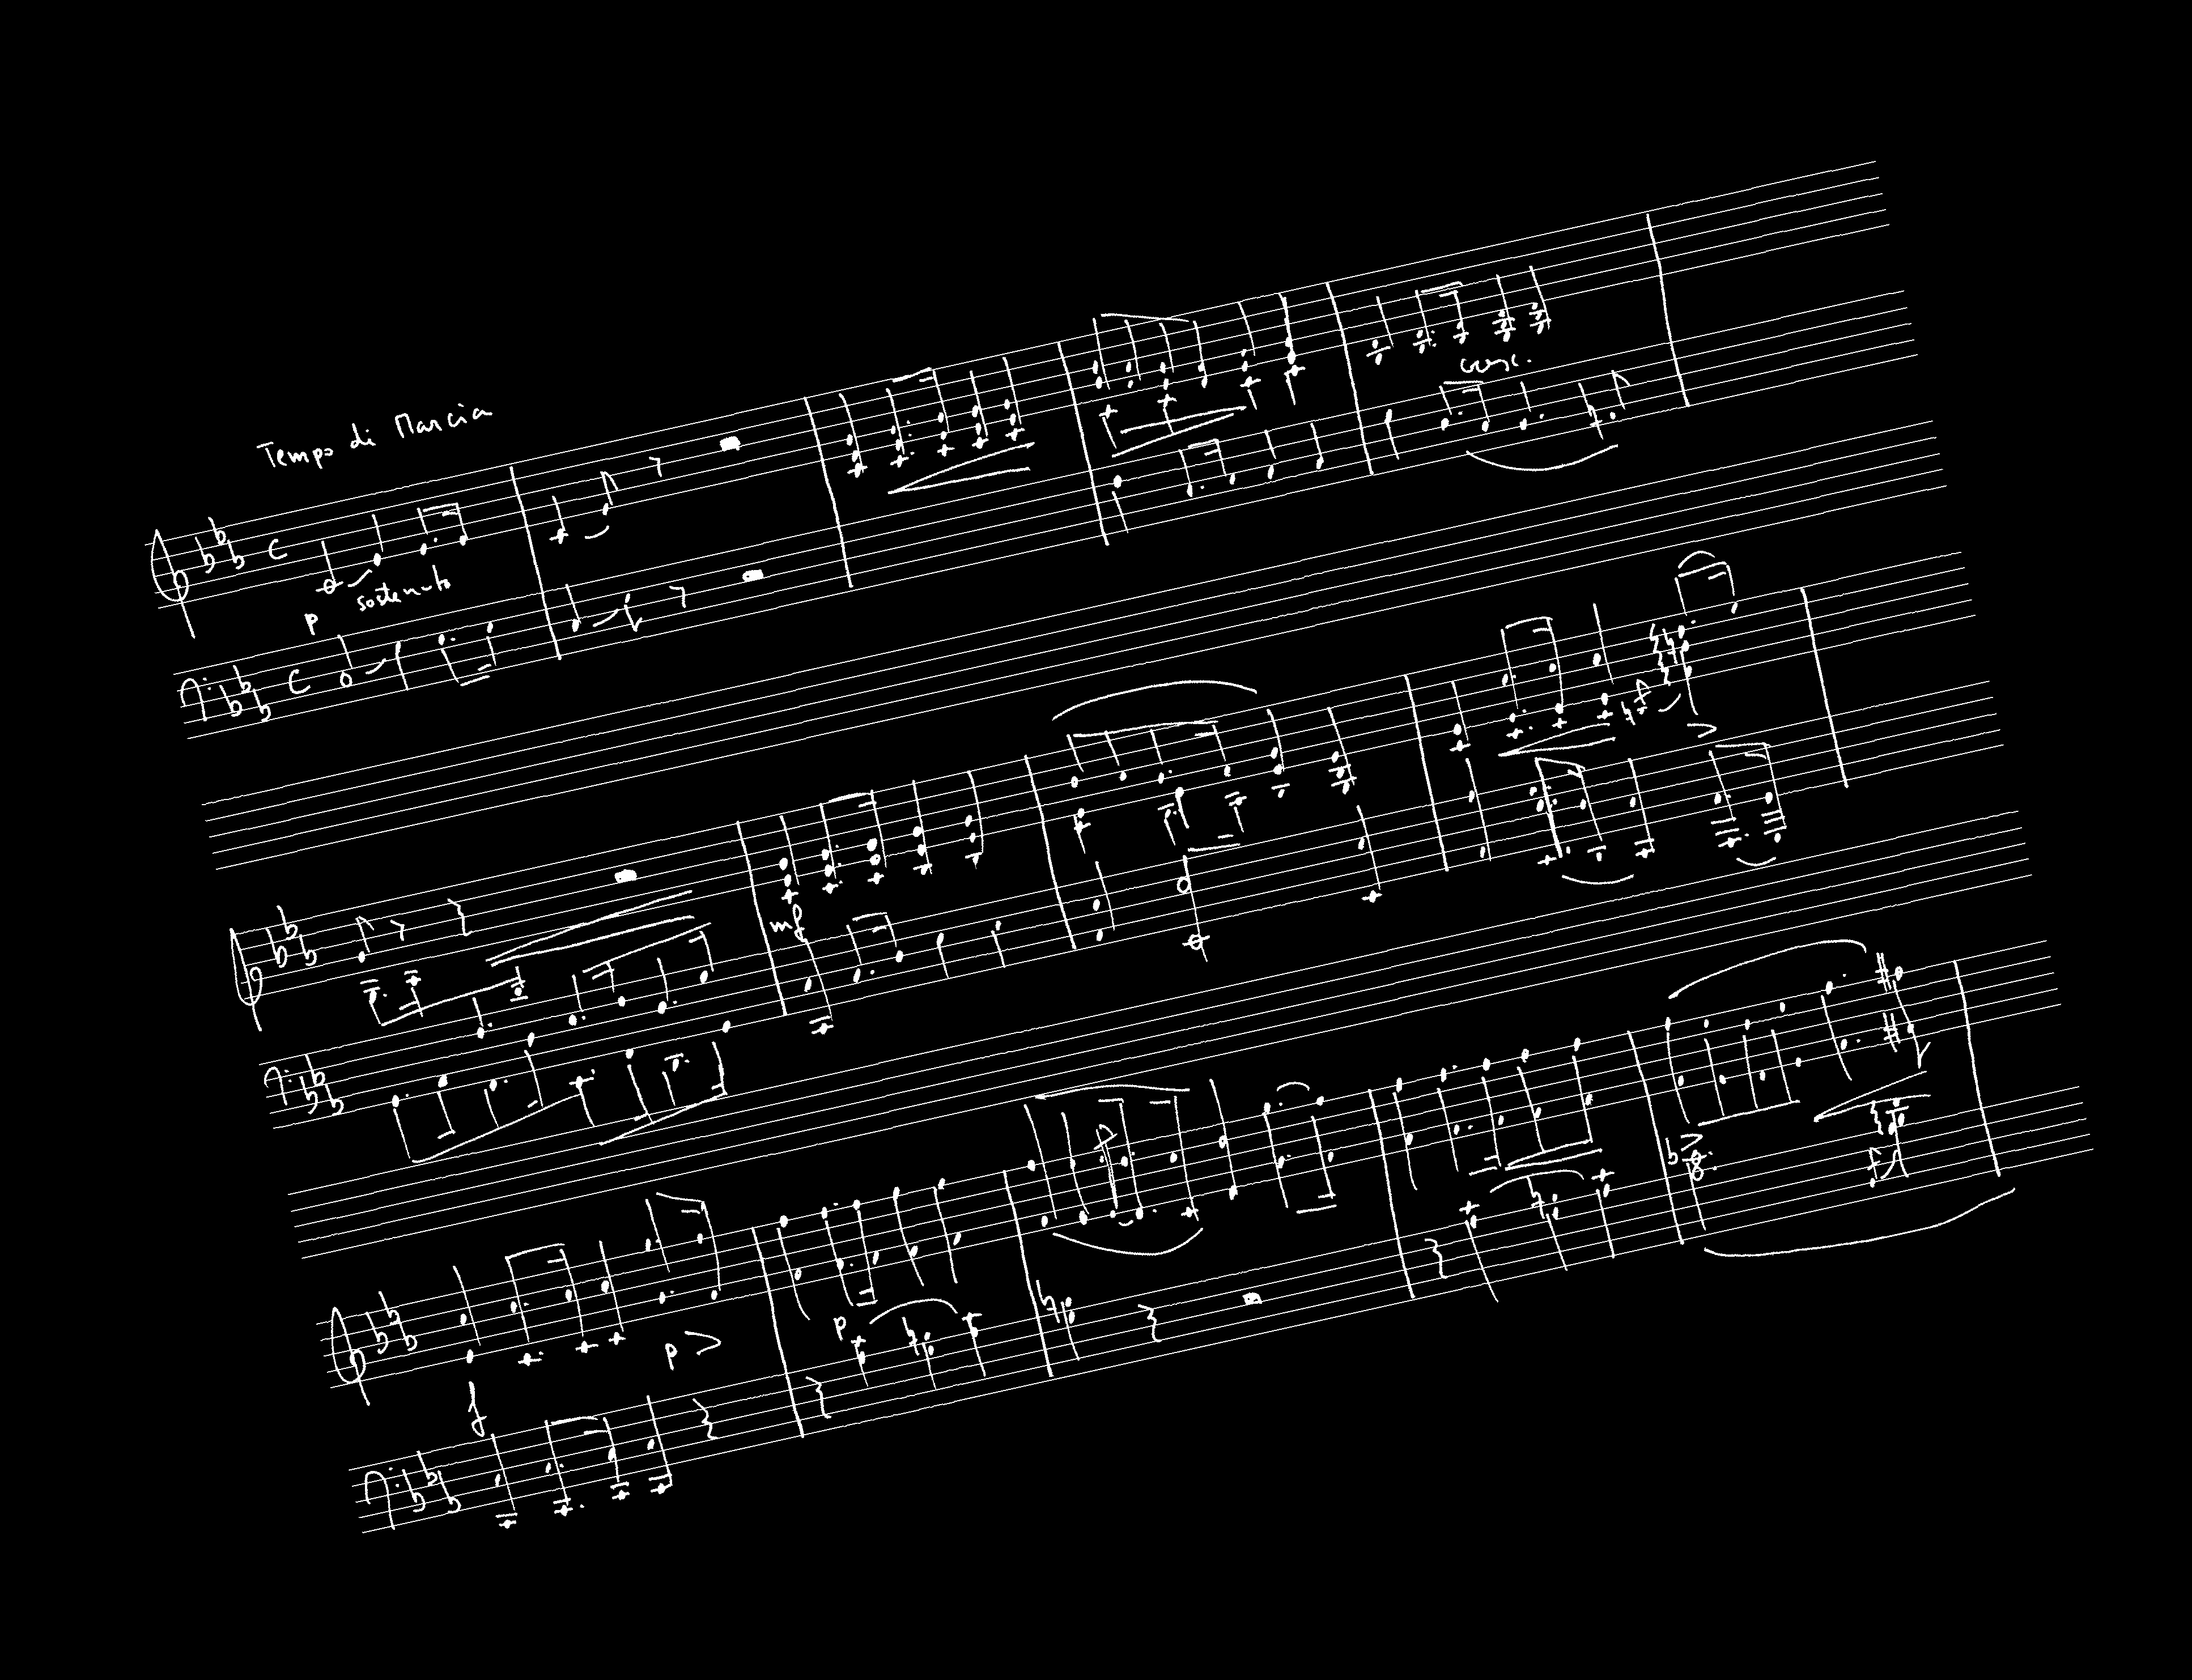 Tempo di Marcia
p sostenuto
cresc.
f
mf
f
p
p
f
f